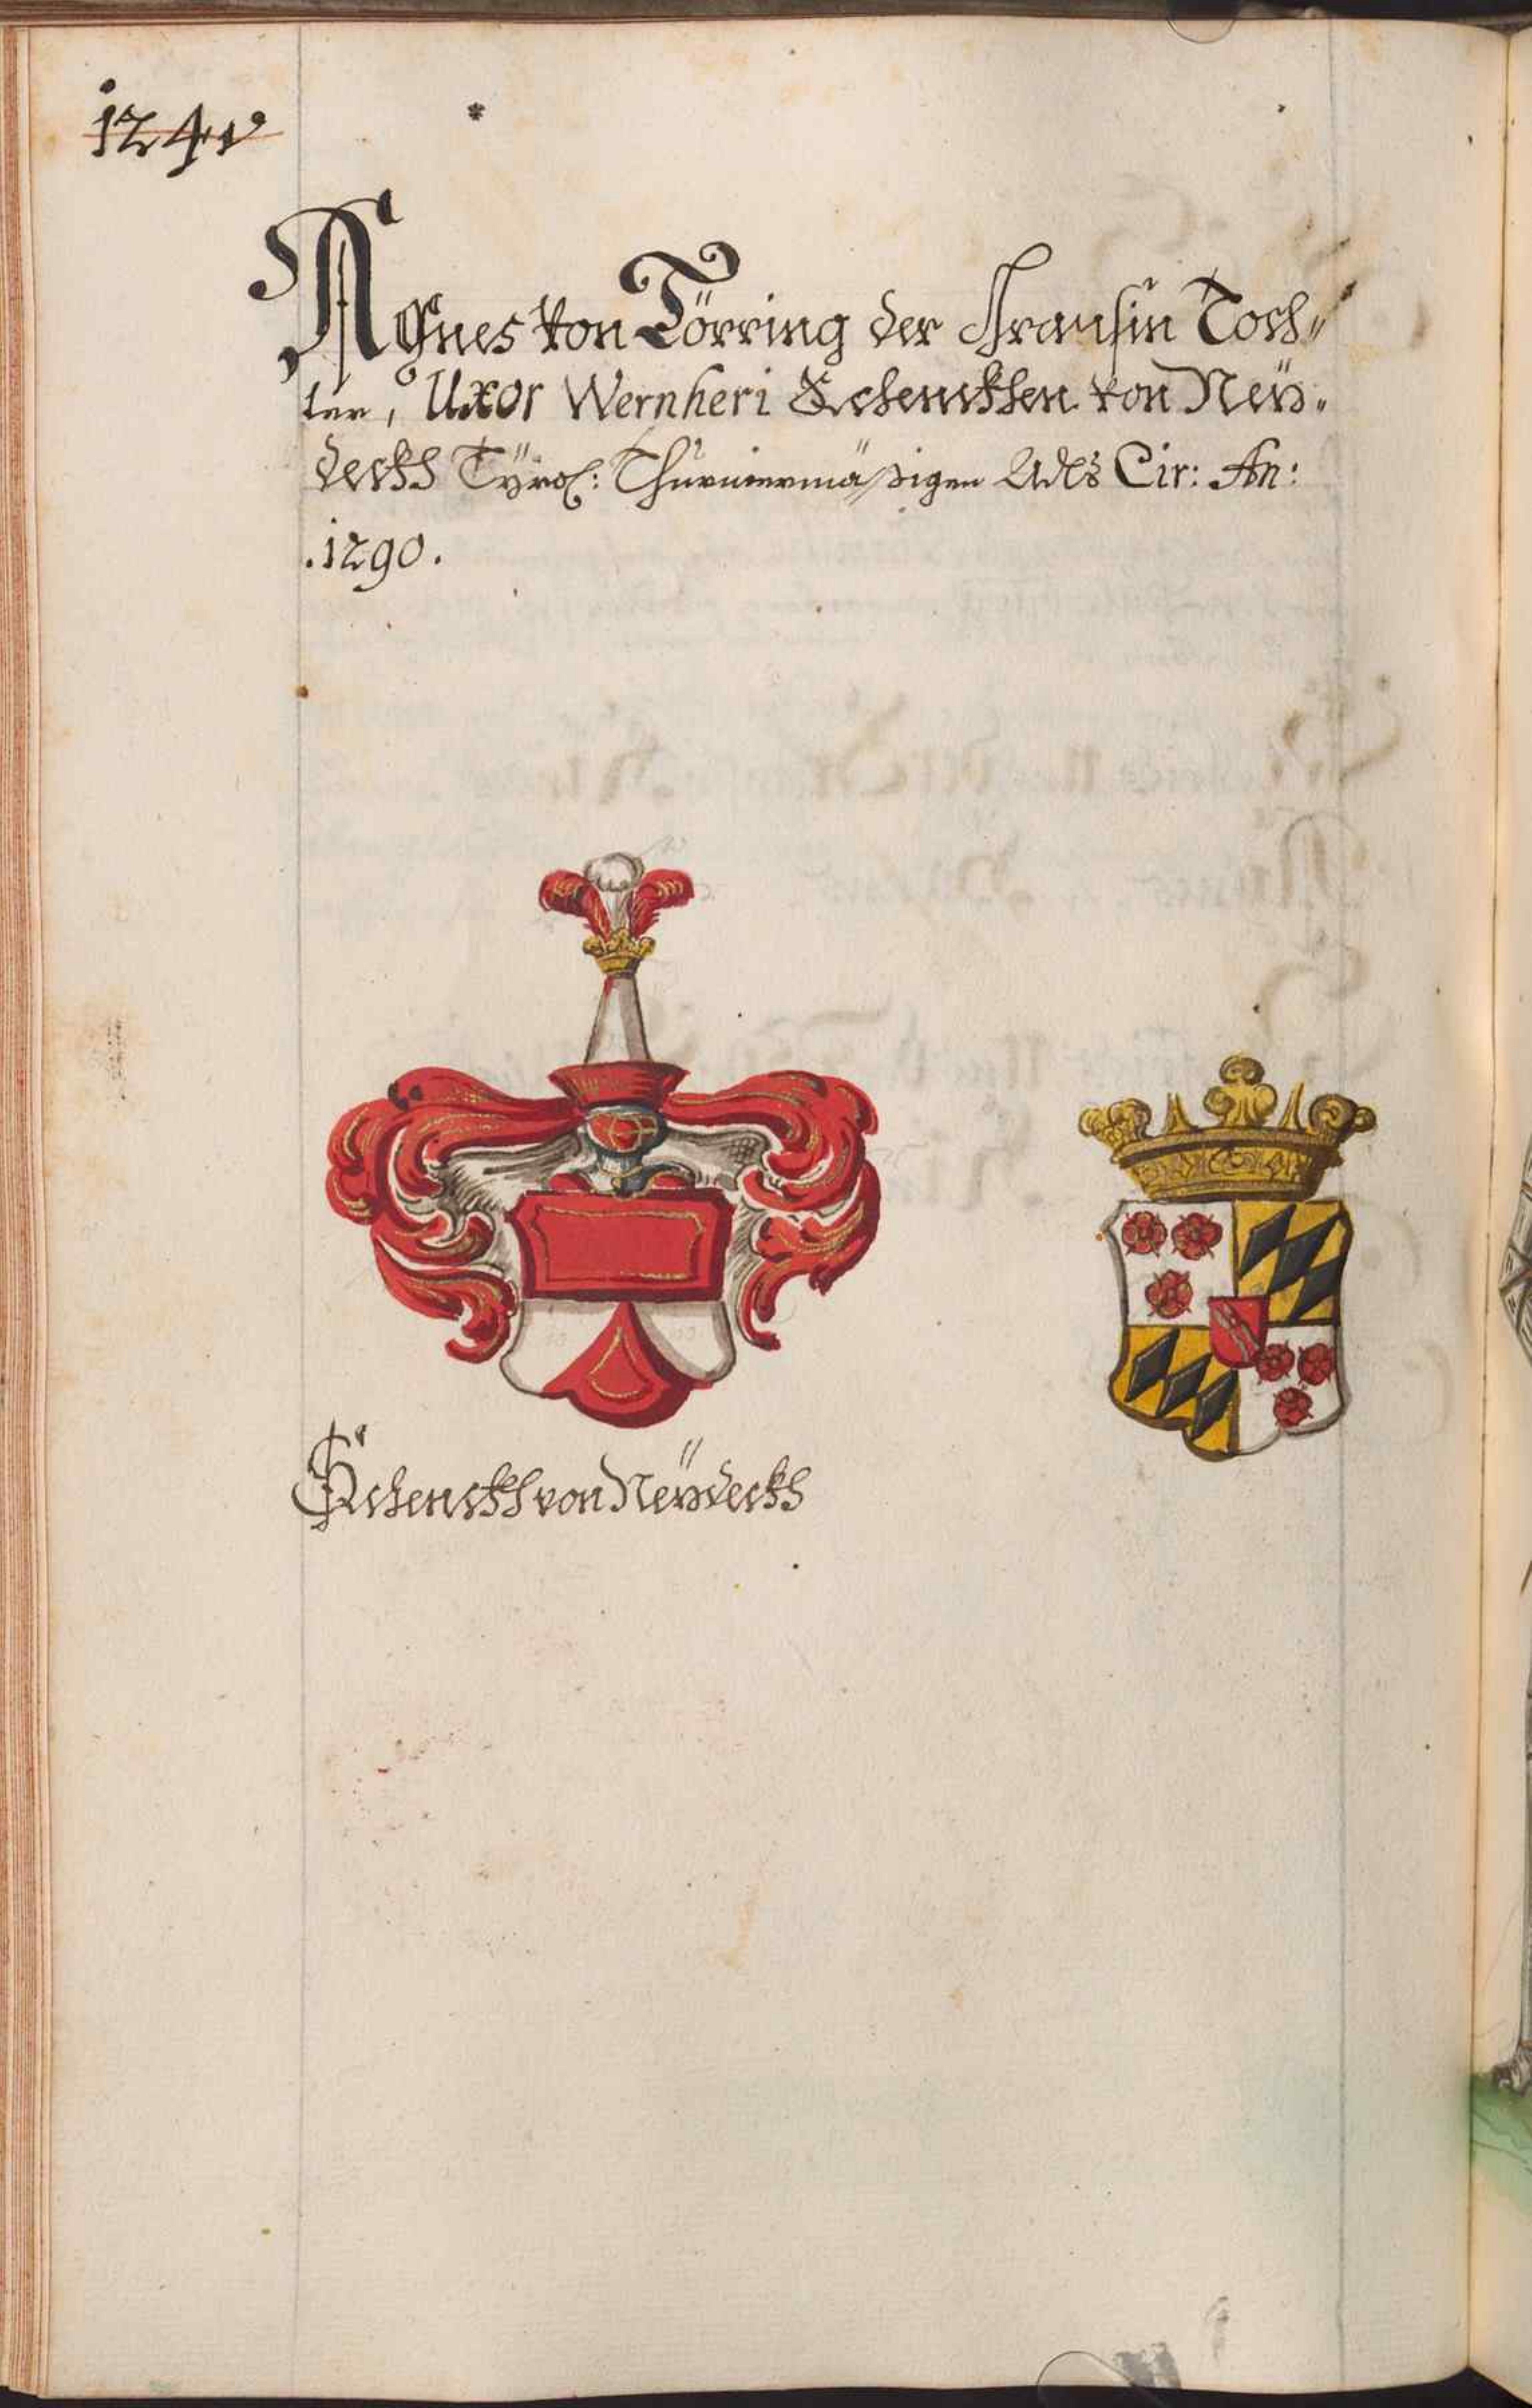 124v
Agnes von Törring der Frausin Toch„
ter, Uxor Wernheri Schenckhen von Neü„
deckh Tÿrol: Thurniermäßigen Adls Cir: An:
.1290.
Schenckh von Neüdeckh